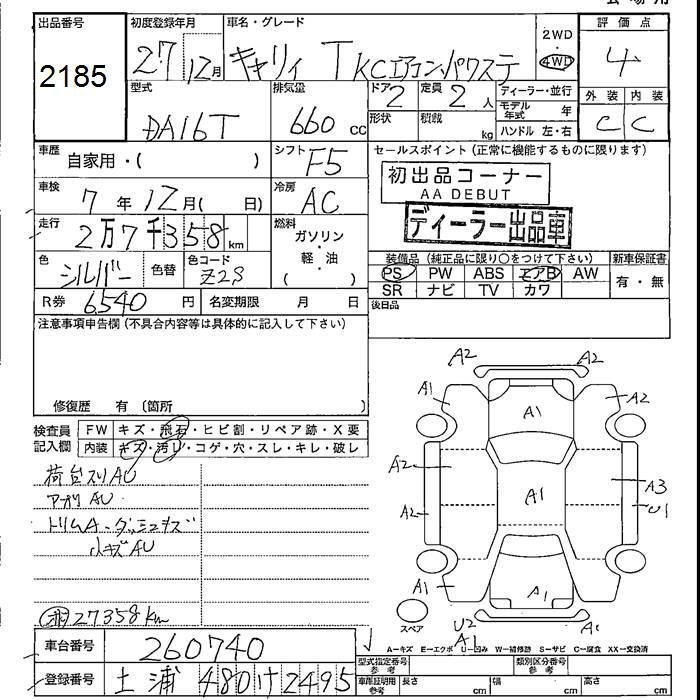 出品番号
2185
初度登録年月
27 12月
車名・グレード
キャリィ T KCエアコンパワステ
2WD
4WD
評価点
4
外装 内装
C C
型式
DA16T
排気量
660 cc
ドア 2
定員 2 人
形状
積載 kg
ディーラー・並行
モデル年式 年
ハンドル 左・右
車歴
自家用・( )
シフト F5
車検
7 年 12 月( 日)
冷房 AC
走行
2万7千358 km
燃料
ガソリン
・
軽・油
( )
色
シルバー
色替
色コード
Z2S
R券 6540 円
名変期限 月 日
セールスポイント (正常に機能するものに限ります)
初出品コーナー
AA DEBUT
ディーラー出品車
装備品 (純正品に限り○をつけて下さい)
新車保証書
PS PW ABS エアB AW
有・無
SR ナビ TV カワ
後日品
注意事項申告欄 (不具合内容等は具体的に記入して下さい)
修復歴 有 (箇所
検査員
記入欄
FW キズ・飛石・ヒビ割・リペア跡・X要
内装 キズ・汚リ・コゲ・穴・スレ・キレ・破レ
荷台スリAU
アオリAU
小キズAU
27358km
A2
A2
A1
A2
A1
A2
A1
A3
A2
U1
A1
A1
U2
A1
スペア
A―キズ E―エクボ U―凹み W―補修跡 S―サビ C―腐食 XX―交換済
車台番号
260740
登録番号
土浦 480 け 2495
型式指定番号
参考
類別区分番号
参考
車庫証明用
参考
長さ cm
幅 cm
高さ cm